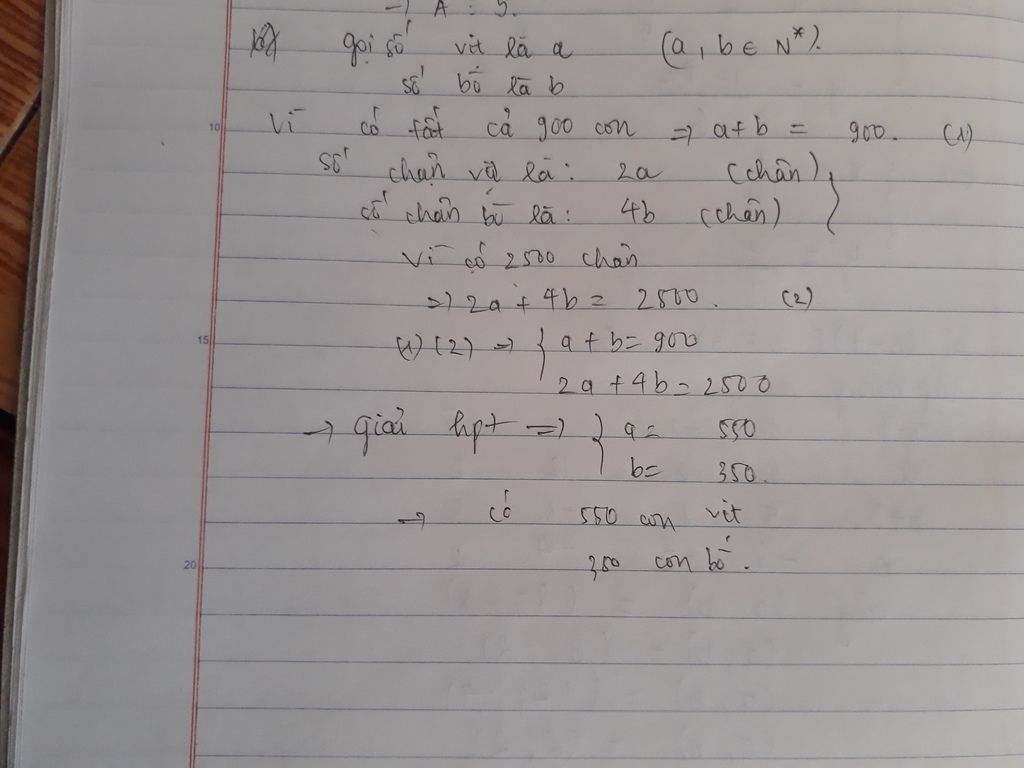 → A : 5.
gọi số vịt là a (a, b ∈ N*).
số bò là b
Vì có tất cả 900 con => a+b = 900. (1)
số chân vịt là: 2a (chân)
số chân bò là: 4b (chân) }
Vì có 2500 chân
=> 2a + 4b = 2500. (2)
(1) (2) => { a + b = 900
2a + 4b = 2500
→ giải hpt => { a = 550
b = 350.
→ có 550 con vịt
350 con bò.
10
15
20